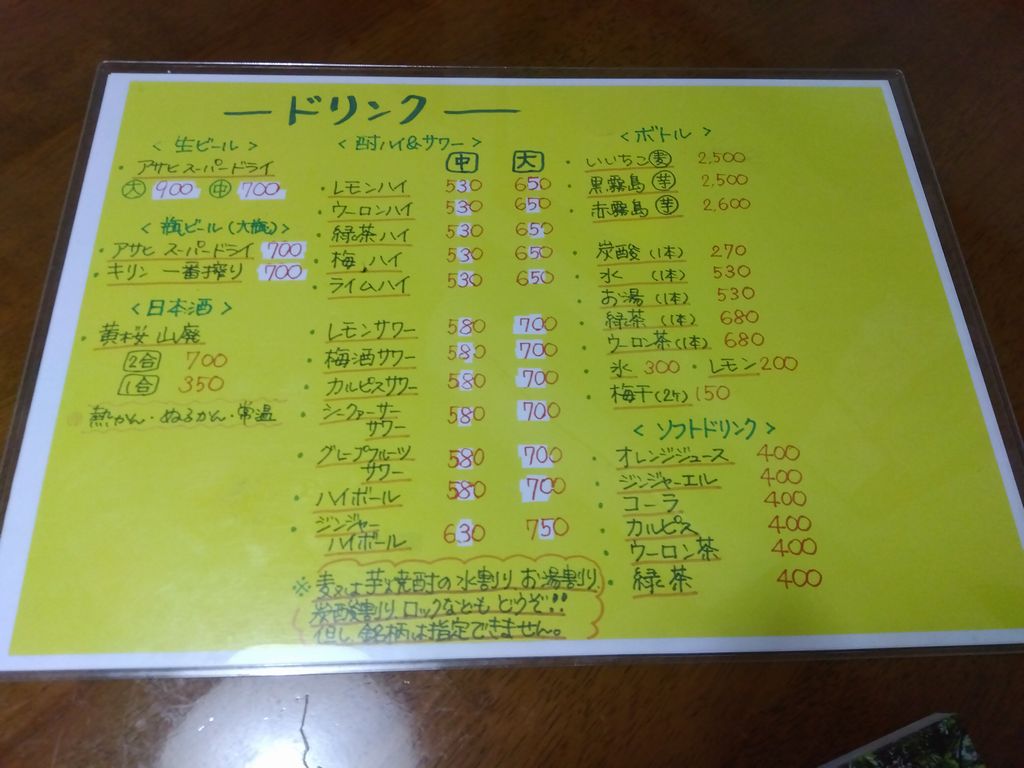 ードリンクー
< 生ビール >
・アサヒスーパードライ
大 900 中 700
< 瓶ビール(大瓶) >
・アサヒ スーパードライ 700
・キリン 一番搾り 700
< 日本酒 >
・黄桜 山廃
2合 700
1合 350
※熱かん・ぬるかん・常温
< 酎ハイ&サワー >
中 大
・レモンハイ 530 650
・ウーロンハイ 530 650
・緑茶ハイ 530 650
・梅ハイ 530 650
・ライムハイ 530 650
・レモンサワー 580 700
・梅酒サワー 580 700
・カルピスサワー 580 700
・シークァーサー
サワー 580 700
・グレープフルーツ
サワー 580 700
・ハイボール 580 700
・ジンジャー
ハイボール 630 750
※麦又は芋焼酎の水割り、お湯割り、
炭酸割り、ロックなども どうぞ!!
但し、銘柄は指定できません。
< ボトル >
・いいちこ 麦 2,500
・黒霧島 芋 2,500
・赤霧島 芋 2,600
・炭酸 (1本) 270
・水 (1本) 530
・お湯 (1本) 530
・緑茶 (1本) 680
・ウーロン茶(1本) 680
・氷 300 ・レモン 200
・梅干(2ケ) 150
< ソフトドリンク >
・オレンジジュース 400
・ジンジャーエル 400
・コーラ 400
・カルピス 400
・ウーロン茶 400
・緑茶 400